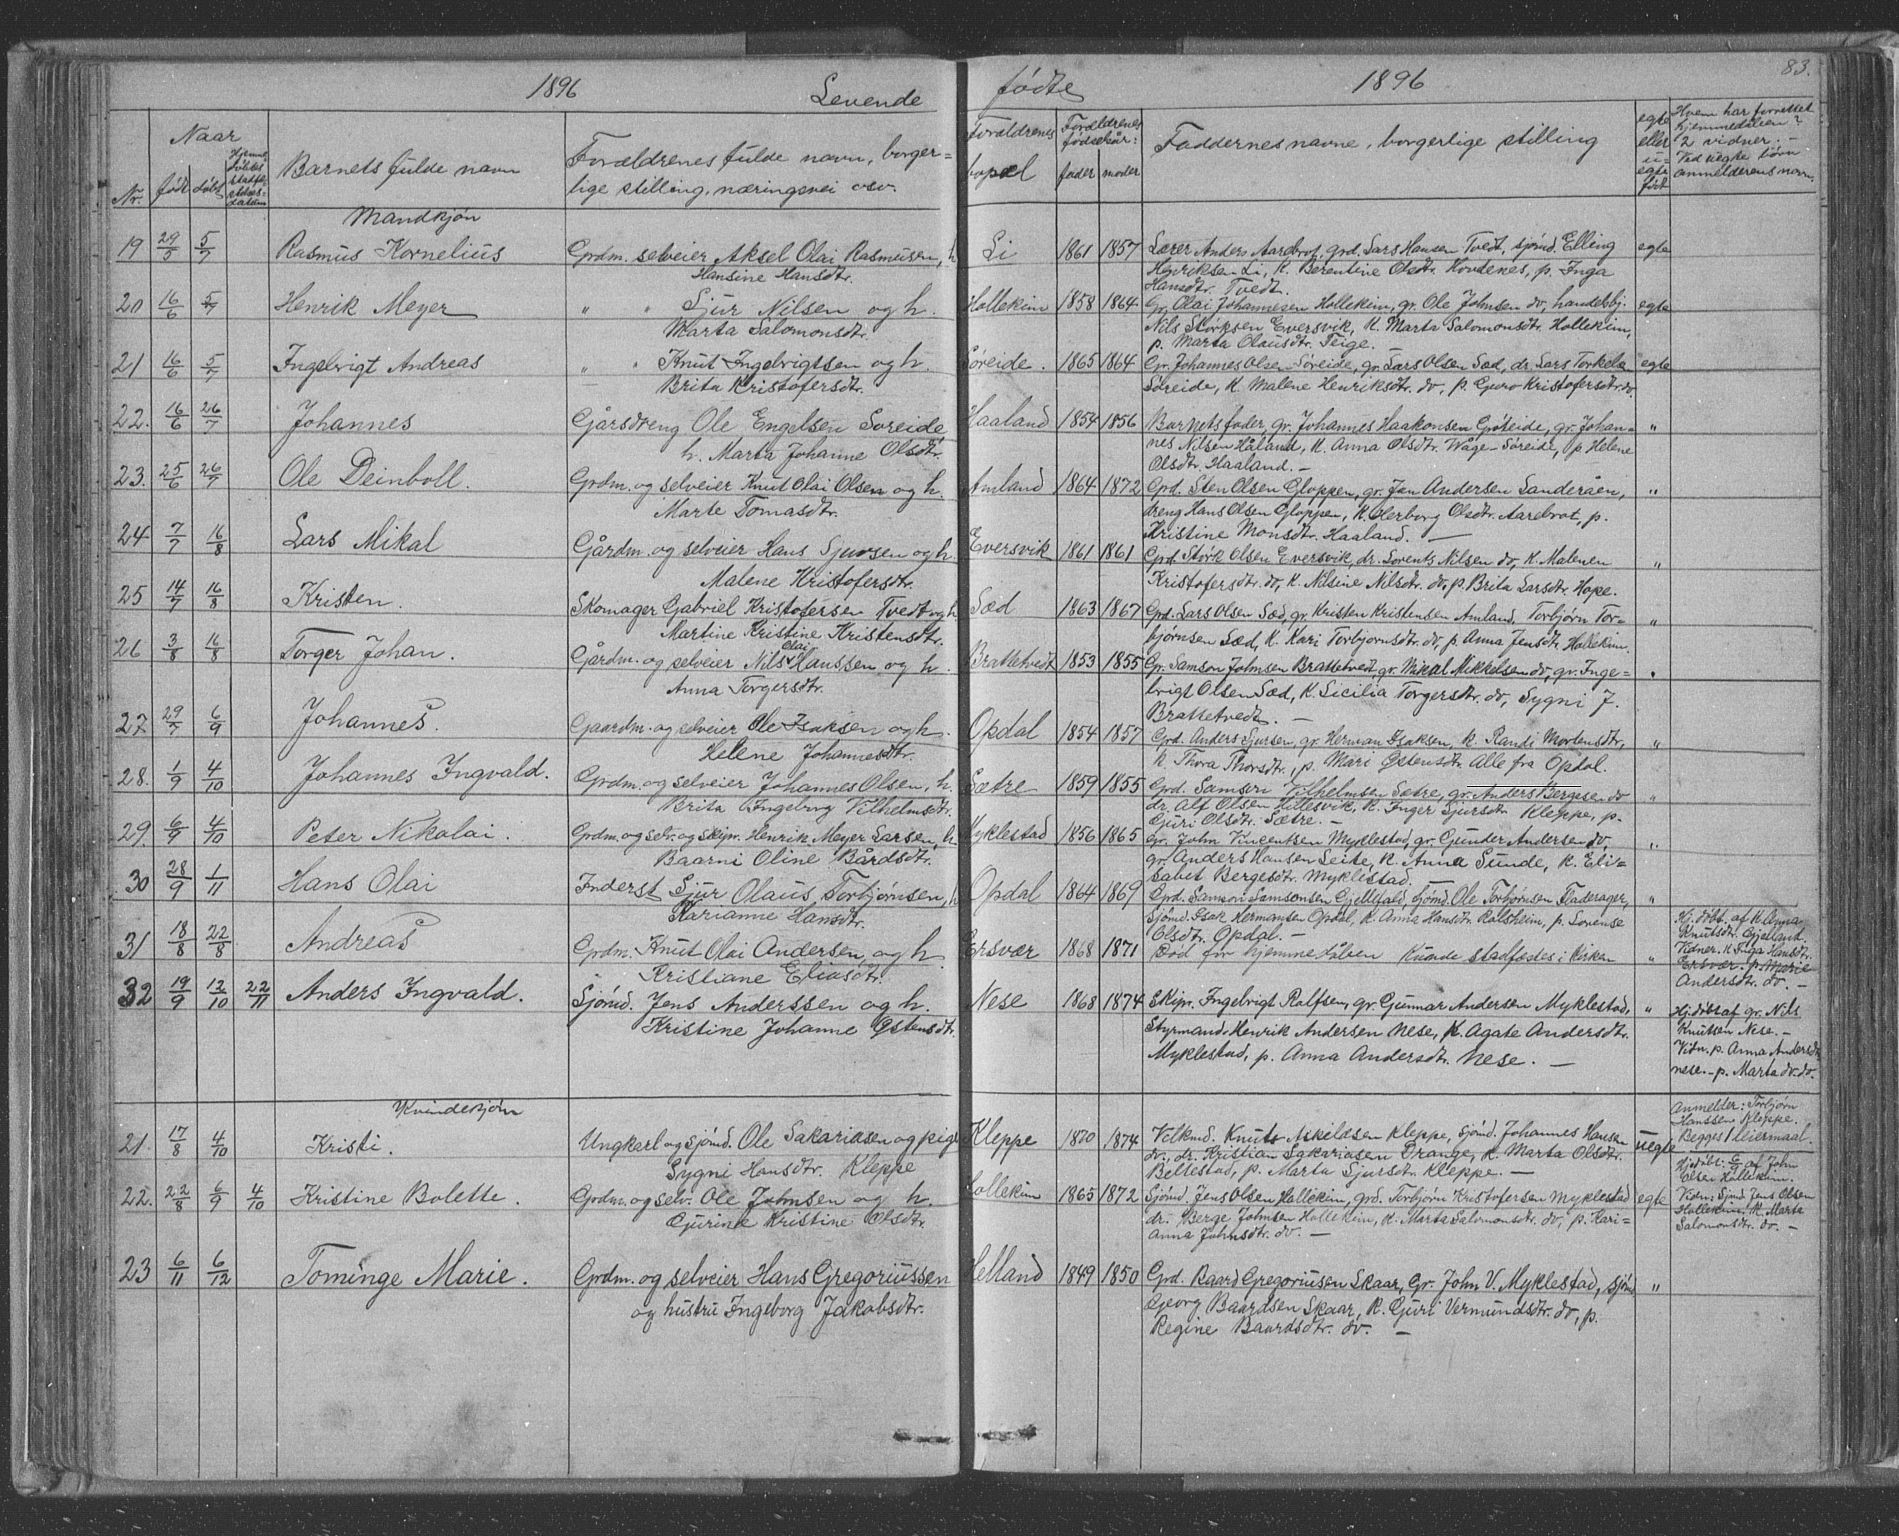 1896 Levende
fødte 1896 83.
Naar
Nr. født døbt
Barnets fulde navn
Forældrenes fulde navn, borger=
lige stilling, næringsvei osv.
Forældrenes bopæl
Forældrenes fødselsår:
fader moder
Faddernes navne, borgerlige stilling
egte eller uegte født
Hvem har forrettet
hjemmedåben?
2 vidner. —
Ved uegte børn
anmelderens navn.
Mandkjøn
19 29/5 5/7 Rasmus Kornelius Grdm. selveier Aksel Olai Rasmusen, h Li 1861 1857 Lærer Anders Aarebrot, grd. Lars Hansen Tvedt, sjømd. Elling egte
Hansine Hansdtr. Henriksen Li, k. Berentine Olsdtr. Hovdenes, p. Inga
Hansdtr. Tvedt.
20 16/6 5/7 Henrik Meyer " " Sjur Nilsen og h. Hollekim 1858 1864 Gr. Olai Johannesen Hollekim, gr. Ole Johnsen do, handelsbj. egte
Marta Salomonsdtr. Nils Størksen Eversvik, k. Marta Salomonsdtr. Hollekim,
p. Marta Olausdtr. Teige. —
21 16/6 5/7 Ingebrigt Andreas " " Knut Ingebrigtsen og h. Søreide. 1865 1864 Gr. Johannes Olsen Søreide, gr. Lars Olsen Sæd, dr. Lars Torkels. egte
Brita Kristofersdtr. Søreide, k. Malene Henriksdtr. do, p. Guro Kristofersdtr. do.
22. 16/6 26/7 Johannes Gårsdreng Ole Engelsen Soreide Haaland 1854 1856 Barnets fader, gr. Johannes Haakonsen Søreide, gr. Johan= "
h. Marta Johanne Olsdtr. nes Nilsen Håland, k. Anna Olsdtr. Wåge-Søreide, p. Helene
Olsdtr. Haaland. —
23. 25/6 26/7 Ole Deinboll. Grdm. og selveier Knut Olai Olsen og h. Amland 1864 1872 Grd. Sten Olsen Gloppen, gr. Jan Andersen Sanderåen, "
Marte Tomasdtr. dreng Hans Olsen Gloppen, k. Herborg Olsdtr. Aarebrot, p.
Kristine Monsdtr. Haaland. —
24 7/7 16/8 Lars Mikal Gårdm. og selveier Hans Sjursen og h. Eversvik 1861 1861 Grd. Størk Olsen Eversvik, dr. Lorents Nilsen do, k. Malenen "
Malene Kristofersdtr. Kristofersdtr. do, k. Nilsine Nilsdtr. do, p. Brita Larsdtr. Hope.
25 14/7 16/8 Kristen. Skomager Gabriel Kristofersen Tvedt og h. Sæd 1863 1867 Grd. Lars Olsen Sæd, gr. Kristen Kristensen Amland, Torbjørn Tor= "
Martine Kristine Kristensdtr. bjørnsen Sæd, k. Kari Torbjornsdtr. do, p. Anna Jensdtr. Hollekim.
26 3/8 16/8 Torger Johan. Gårdm. og selveier Nils Olai Hanssen og h. Brattetvedt 1853 1855 Gr. Samson Johnsen Brattetvedt, gr. Mikal Mikkelsen do, gr. Inge= "
Anna Torgersdtr. brigt Olsen Sæd, k. Sicilia Torgersdtr. do, Sygni J.
Brattetvedt. —
27. 29/7 6/9 Johannes. Gaardm. og selveier Ole Isaksen og h. Opdal 1854 1857 Grd. Anders Sjursen, gr. Herman Isaksen, k. Randi Mortensdtr, "
Helene Johannesdtr. k. Thora Thorsdtr., p. Mari Østensdtr. Alle fra Opdal.
28. 1/9 4/10 Johannes Ingvald. Grdm. og selveier Johannes Olsen, h. Sætre 1859 1855 Grd. Samson Vilhelmsen Sætre, gr. Anders Bergesen do "
Brita Ingeborg Vilhelmsdtr. dr. Alf Olsen Hillesvik, k. Inger Sjursdtr. Kleppe, p.
Guri Olsdtr. Sætre. —
29. 6/9 4/10 Peter Nikolai. Grdm. og selv. og Skipr. Henrik Meyer Larsen, h. Myklestad 1856 1865 gr. John Vincentsen Myklestad, gr. Gunder Andersen do, "
Baarni Oline Bårdsdtr. gr. Anders Hansen Leite, k. Anna Sunde, k. Eli=
sabet Bergesdtr. Myklestad.
30 28/9 1/11 Hans Olai Inderst Sjur Olaus Torbjørnsen, h Opdal 1864 1869 Grd. Samson Samsonsen Gjellefald, sjomd. Ole Torbjornsen Fladerager, "
Karianne Hansdtr. Sjömd. Isak Hermansen Opdal, k. Anna Hansdtr. Ralsheim, p. Lovense
Olsdtr. Opdal. —
31 18/8 22/8 Andreas Grdm. Knut Olai Andersen og h. Ersvær 1868 1871 Död før hjemmedåben kunde stadfæstes i kirken "
Kristiane Eliasdtr.
Hj.döbt. af k. Anna
Knutsdtr. Gjelland.
Vidner. k. Inga Hansdtr.
Ersvær. p. Marie
Andersdtr. do. —
32 19/9 12/10 22/11 Anders Ingvald. Sjömd. Jens Anderssen og h. Nese 1868 1874 Skipr. Ingebrigt Ralfsen, gr. Gunnar Andersen Myklestad, "
Kristine Johanne Østensdtr. Styrmand Henrik Andersen Nese, k. Agate Andersdtr.
Myklestad, p. Anna Andersdtr. Nese. —
Hj.döbt af gr. Nils
Knutsen Nese. —
Vidn. p. Anna Andersdtr
nese. - p. Marta do. do.
Kvindekjøn
21. 17/8 4/10 Kristi. Ungkarl og Sjömd. Ole Sakariasen og pige Kleppe 1870 1874 Velkmd. Knut Askildsen Kleppe, Sjömd. Johannes Hansen uegte
Sygni Hansdtr. Kleppe do, dr. Kristian Sakariasen Drange, k. Marta Olsdtr.
Bellestad, p. Marta Sjursdtr. Kleppe. —
Anmelder: Torbjörn
Hanssen Kleppe.
Begges 1 leiermaal.
22. 22/8 6/9 4/10 Kristine Bolette. Grdm. og selv. Ole Johnsen og h. Hollekim 1865 1872 Sjömd. Jens Olsen Hollekim, grd. Torbjorn Kristofersen Myklestad egte
Gurine Kristine Olsdtr. dr. Berge Johnsen Hollekim, k. Marta Salomonsdtr. do, p. Kari=
Anna Johnsdtr. do. —
Hj.döbt. 6/9 af John
Olsen Hollekim.
Vidn: Sjmd Jens Olsen
Hollekim, k. Marta
Salomonsdtr. do. —
23 6/11 6/12 Tominge Marie. Grdm. og selveier Hans Gregoriussen Helland 1849 1850 Grd. Baard Gregoriusen Skaar, Gr. John V. Myklestad, sjömd "
og hustru Ingeborg Jakobsdtr. Georg Baardsen Skaar, k. Guri Vermundsdtr. do, p.
Regine Baardsdtr. do. —